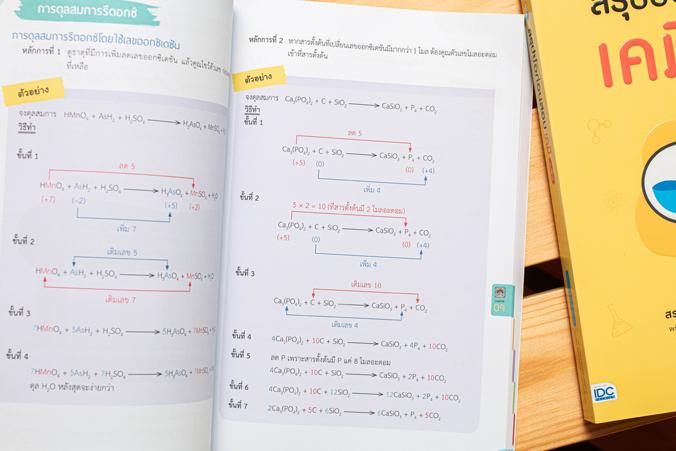 การดุลสมการรีดอกซ์
การดุลสมการรีดอกซ์โดยใช้เลขออกซิเดชัน
หลักการที่ 1 ดูธาตุที่มีการเพิ่มลดเลขออกซิเดชัน แล้วคูณไขว้ตัวเลข
ที่เหลือ
ตัวอย่าง
จงดุลสมการ HMnO₄ + AsH₂ + H₂SO₄ ⟶ H₃AsO₄ + MnSO₄ +
วิธีทำ
ขั้นที่ 1
ลด 5
HMnO₄ + AsH₂ + H₂SO₄ ⟶ H₃AsO₄ + MnSO₄ + H₂O
(+7) (-2) (+5) (+2)
เพิ่ม 7
ขั้นที่ 2
เติมเลข 5
HMnO₄ + AsH₂ + H₂SO₄ ⟶ H₃AsO₄ + MnSO₄ + H₂O
เติมเลข 7
ขั้นที่ 3
7HMnO₄ + 5AsH₂ + H₂SO₄ ⟶ 5H₃AsO₄ + 7MnSO₄ +
ขั้นที่ 4
7HMnO₄ + 5AsH₂ + 7H₂SO₄ ⟶ 5H₃AsO₄ + 7MnSO₄ +
ดุล H₂O หลังสุดจะง่ายกว่า
หลักการที่ 2 หากสารตั้งต้นที่เปลี่ยนเลขออกซิเดชันมีมากกว่า 1 โมล ต้องคูณตัวเลขโมลอะตอม
เข้าที่สารตั้งต้น
ตัวอย่าง
จงดุลสมการ Ca₃(PO₄)₂ + C + SiO₂ ⟶ CaSiO₃ + P₄ + CO₂
วิธีทำ
ขั้นที่ 1
ลด 5
Ca₃(PO₄)₂ + C + SiO₂ ⟶ CaSiO₃ + P₄ + CO₂
(+5) (0) (0) (+4)
เพิ่ม 4
ขั้นที่ 2
5 x 2 = 10 (ที่สารตั้งต้นมี 2 โมลอะตอม)
Ca₃(PO₄)₂ + C + SiO₂ ⟶ CaSiO₃ + P₄ + CO₂
(+5) (0) (0) (+4)
เพิ่ม 4
ขั้นที่ 3
เติมเลข 10
Ca₃(PO₄)₂ + C + SiO₂ ⟶ CaSiO₃ + P₄ + CO₂
เติมเลข 4
ขั้นที่ 4 4Ca₃(PO₄)₂ + 10C + SiO₂ ⟶ CaSiO₃ + 4P₄ + 10CO₂
ขั้นที่ 5 ลด P เพราะสารตั้งต้นมี P แค่ 8 โมลอะตอม
4Ca₃(PO₄)₂ + 10C + SiO₂ ⟶ CaSiO₃ + 2P₄ + 10CO₂
ขั้นที่ 6 4Ca₃(PO₄)₂ + 10C + 12SiO₂ ⟶ 12CaSiO₃ + 2P₄ + 10CO₂
ขั้นที่ 7 2Ca₃(PO₄)₂ + 5C + 6SiO₂ ⟶ 6CaSiO₃ + P₄ + 5CO₂
09
เคมี
IDC